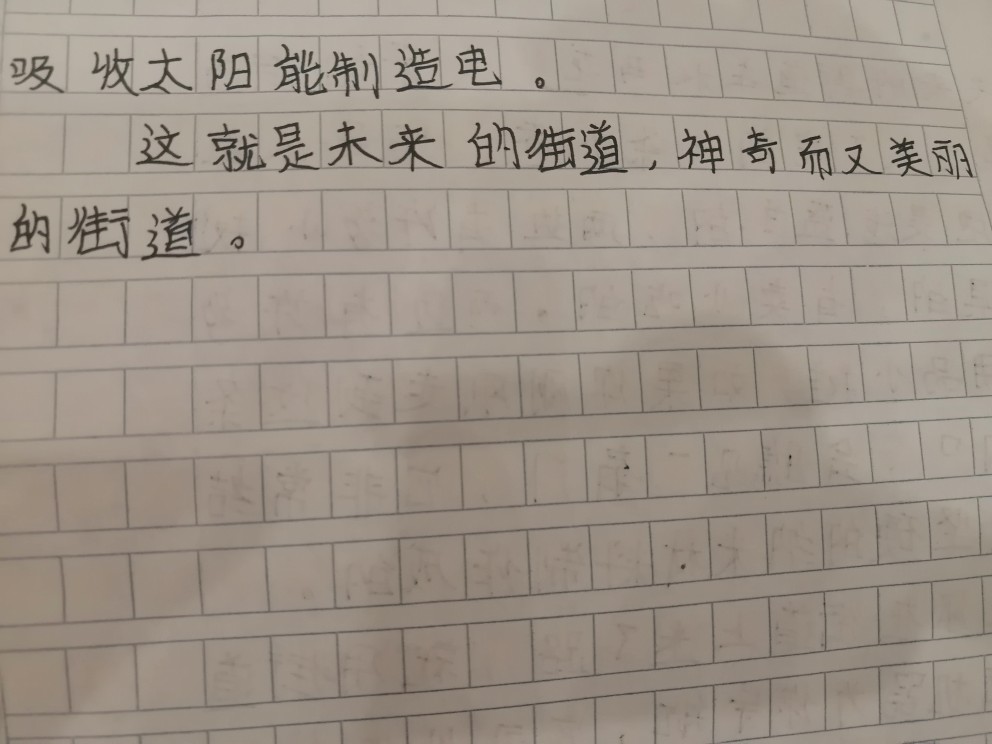 吸收太阳能制造电。
这就是未来的街道，神奇而又美丽
的街道。